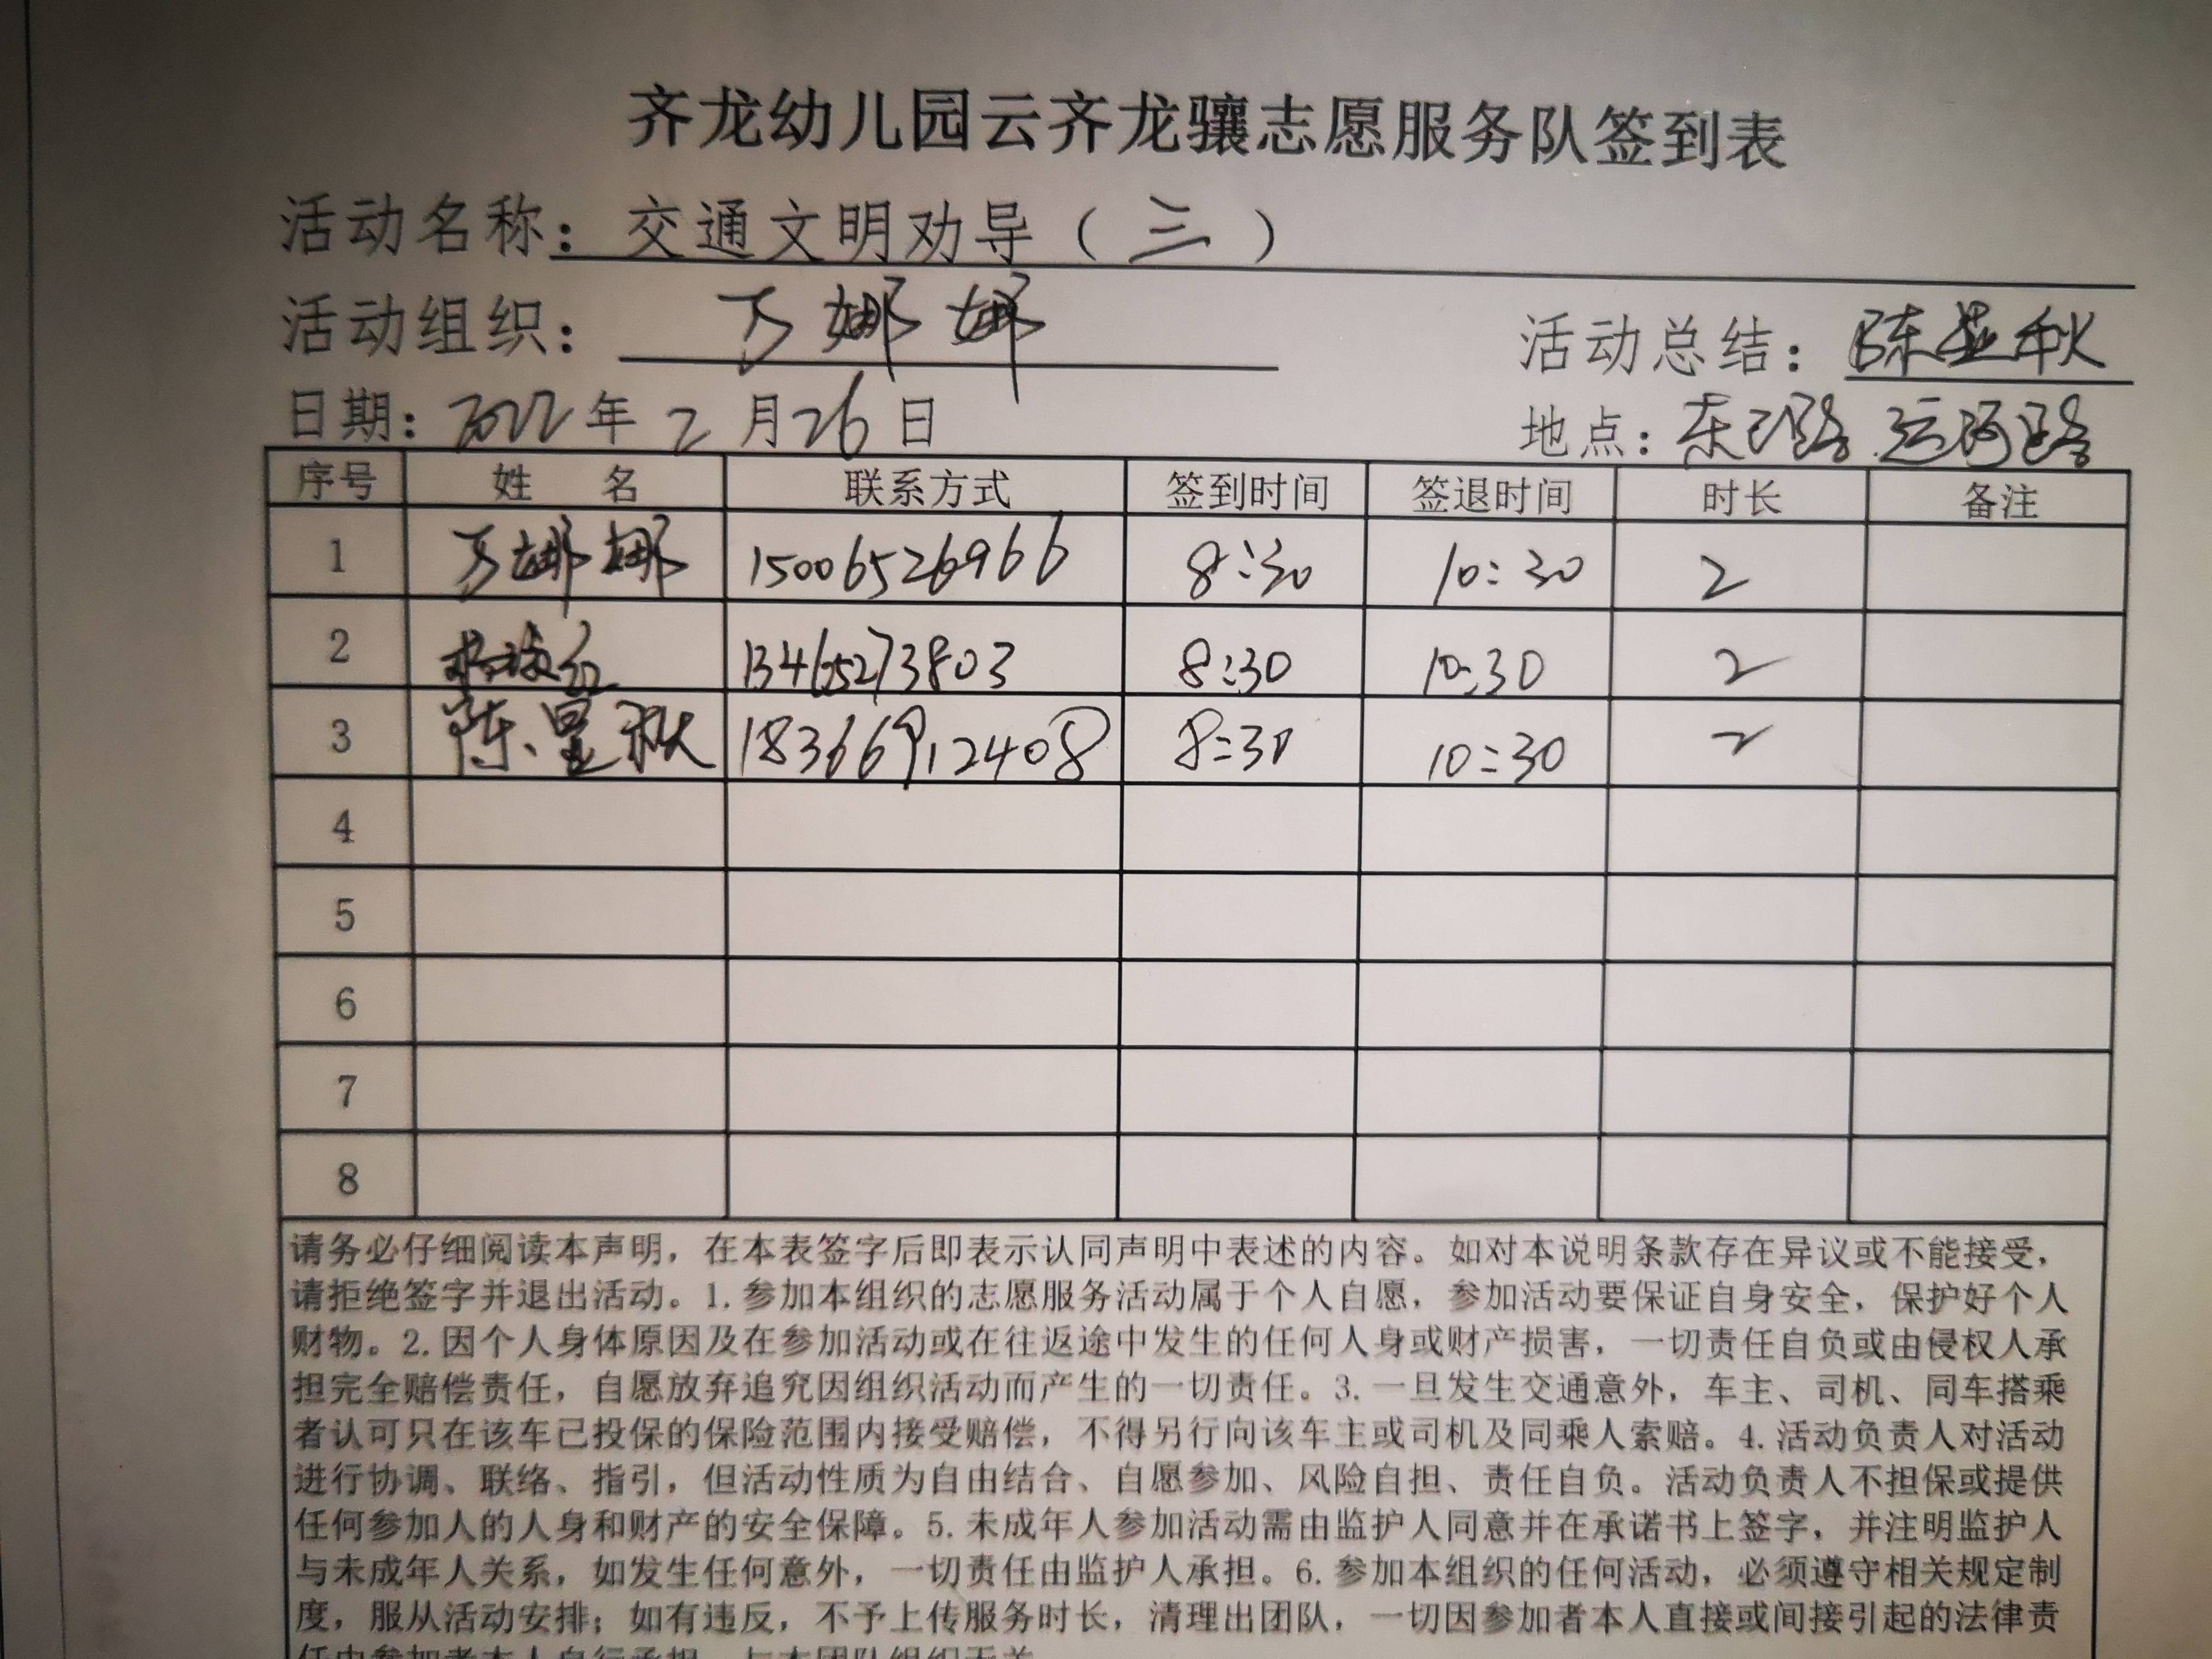 齐龙幼儿园云齐龙骧志愿服务队签到表
活动名称：交通文明劝导（三）
活动组织：万娜娜 活动总结：陈星秋
日期：2022年2月26日 地点：东 路 运河路
序号 姓 名 联系方式 签到时间 签退时间 时长 备注
1 万娜娜 15006526966 8:30 10:30 2
2 13465273803 8:30 10:30 2
3 陈星秋 18366912408 8:30 10:30 2
4
5
6
7
8
请务必仔细阅读本声明，在本表签字后即表示认同声明中表述的内容。如对本说明条款存在异议或不能接受，
请拒绝签字并退出活动。1.参加本组织的志愿服务活动属于个人自愿，参加活动要保证自身安全，保护好个人
财物。2.因个人身体原因及在参加活动或在往返途中发生的任何人身或财产损害，一切责任自负或由侵权人承
担完全赔偿责任，自愿放弃追究因组织活动而产生的一切责任。3.一旦发生交通意外，车主、司机、同车搭乘
者认可只在该车已投保的保险范围内接受赔偿，不得另行向该车主或司机及同乘人索赔。4.活动负责人对活动
进行协调、联络、指引，但活动性质为自由结合、自愿参加、风险自担、责任自负。活动负责人不担保或提供
任何参加人的人身和财产的安全保障。5.未成年人参加活动需由监护人同意并在承诺书上签字，并注明监护人
与未成年人关系，如发生任何意外，一切责任由监护人承担。6.参加本组织的任何活动，必须遵守相关规定制
度，服从活动安排；如有违反，不予上传服务时长，清理出团队，一切因参加者本人直接或间接引起的法律责
任由参加者本人自行承担，与本团队组织无关